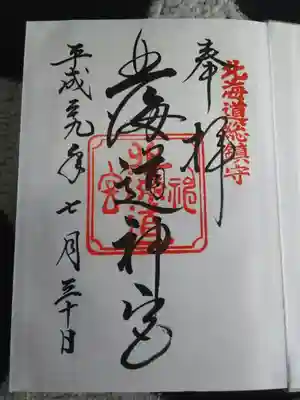 北海道総鎮守
奉拝
北海道神宮
北海道神宮
平成二九年七月三十日